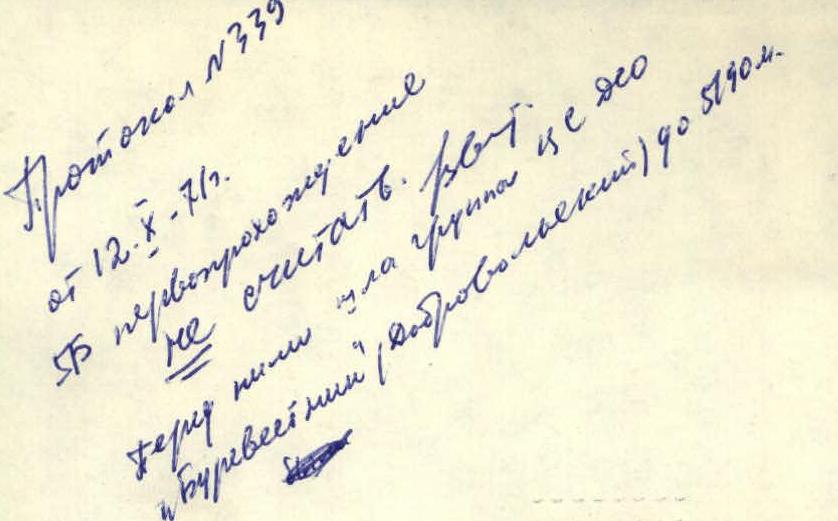 Протокол N339
от 12.X-71г.
5Б первопрохождение
не считать.
Перед ними шла группа ЦС ДСО
"Буревестник" (Добровольский) до 5190м.